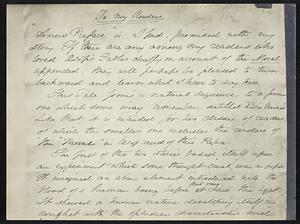 To My Readers
A new Preface is, I find, promised with my
story. If there are any among my readers who
loved Aesop's Fables chiefly on account of the Moral
appended, they will perhaps be pleased to turn
backward and learn what I have to say here.
This tale forms a natural sequence to a former
one which some may remember, entitled "Elsie Venner."
Like that it is intended for two classes of readers
of which the smaller one includes the readers of
the "Morals" in Aesop and of this Paper.
The first of the two stories based itself upon
an experiment which some thought cruel, even on paper.
It imagined an alien element introduced into the
blood of a human being before that being saw the light.
It showed a human nature developing itself in
conflict with the ophidian characteristics and